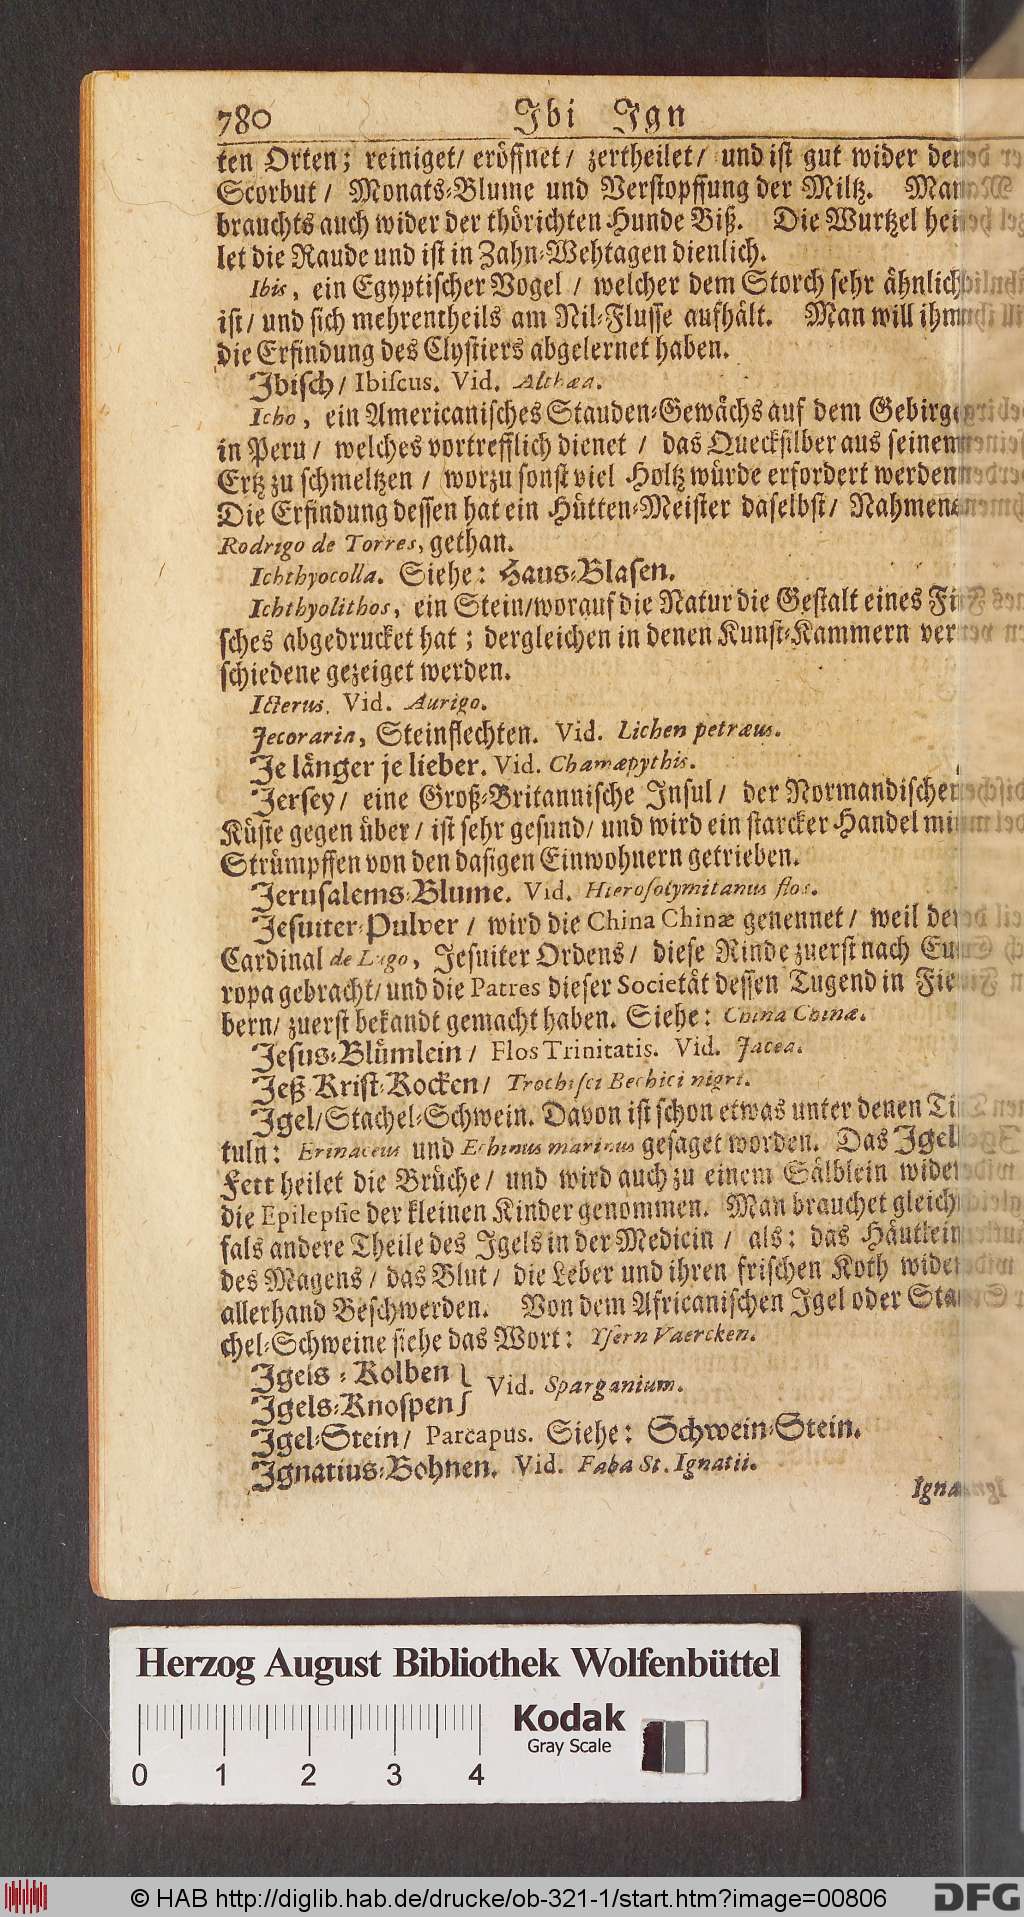 780 Ibi Ign
ten Orten; reiniget/ eröffnet/ zertheilet/ und ist gut wider den
Scorbut/ Monats-Blume und Verstopffung der Miltz. Man
brauchts auch wider der thörichten Hunde Biß. Die Wurtzel hei
let die Raude und ist in Zahn-Wehtagen dienlich.
Ibis, ein Egyptischer Vogel/ welcher dem Storch sehr ähnlich
ist/ und sich mehrentheils am Nil-Flusse aufhält. Man will ihm
die Erfindung des Clystiers abgelernet haben.
Ibisch/ Ibiscus. Vid. Althæa.
Icho, ein Americanisches Stauden-Gewächs auf dem Gebirge
in Peru/ welches vortrefflich dienet/ das Quecksilber aus seinem
Ertz zu schmeltzen/ worzu sonst viel Holtz würde erfordert werden
Die Erfindung dessen hat ein Hütten-Meister daselbst/ Nahmens
Rodrigo de Torres, gethan.
Ichthyocolla. Siehe: Haus-Blasen.
Ichthyolithos, ein Stein/worauf die Natur die Gestalt eines Fi
sches abgedrucket hat; dergleichen in denen Kunst-Kammern ver
schiedene gezeiget werden.
Icterus. Vid. Aurigo.
Jecoraria, Steinflechten. Vid. Lichen petræus.
Je länger je lieber. Vid. Chamæpythis.
Jersey/ eine Groß-Britannische Insul/ der Normandischen
Küste gegen über/ ist sehr gesund/ und wird ein starcker Handel mit
Strümpffen von den dasigen Einwohnern getrieben.
Jerusalems-Blume. Vid. Hierosolymitanus flos.
Jesuiter-Pulver/ wird die China Chinæ genennet/ weil der
Cardinal de Lugo, Jesuiter Ordens/ diese Rinde zuerst nach Eu
ropa gebracht/ und die Patres dieser Societät dessen Tugend in Fie
bern/ zuerst bekandt gemacht haben. Siehe: China Chinæ.
Jesus-Blümlein/ Flos Trinitatis. Vid. Jacea.
Jeß-Krist-Rocken/ Trochisci Bechici nigri.
Igel/Stachel-Schwein. Davon ist schon etwas unter denen Ti
tuln: Erinaceus und Echinus marinus gesaget worden. Das Igel
Fett heilet die Brüche/ und wird auch zu einem Sälblein wider
die Epilepsie der kleinen Kinder genommen. Man brauchet gleich
fals andere Theile des Igels in der Medicin/ als: das Häutlein
des Magens/ das Blut/ die Leber und ihren frischen Koth wider
allerhand Beschwerden. Von dem Africanischen Igel oder Sta
chel-Schweine siehe das Wort: Ysern Vaercken.
Igels-Kolben }
Vid. Sparganium.
Igels-Knospen}
Igel-Stein/ Parcapus. Siehe: Schwein-Stein.
Ignatius-Bohnen. Vid. Faba St. Ignatii.
Igna
Herzog August Bibliothek Wolfenbüttel
Kodak
Gray Scale
0 1 2 3 4
© HAB http://diglib.hab.de/drucke/ob-321-1/start.htm?image=00806
DFG